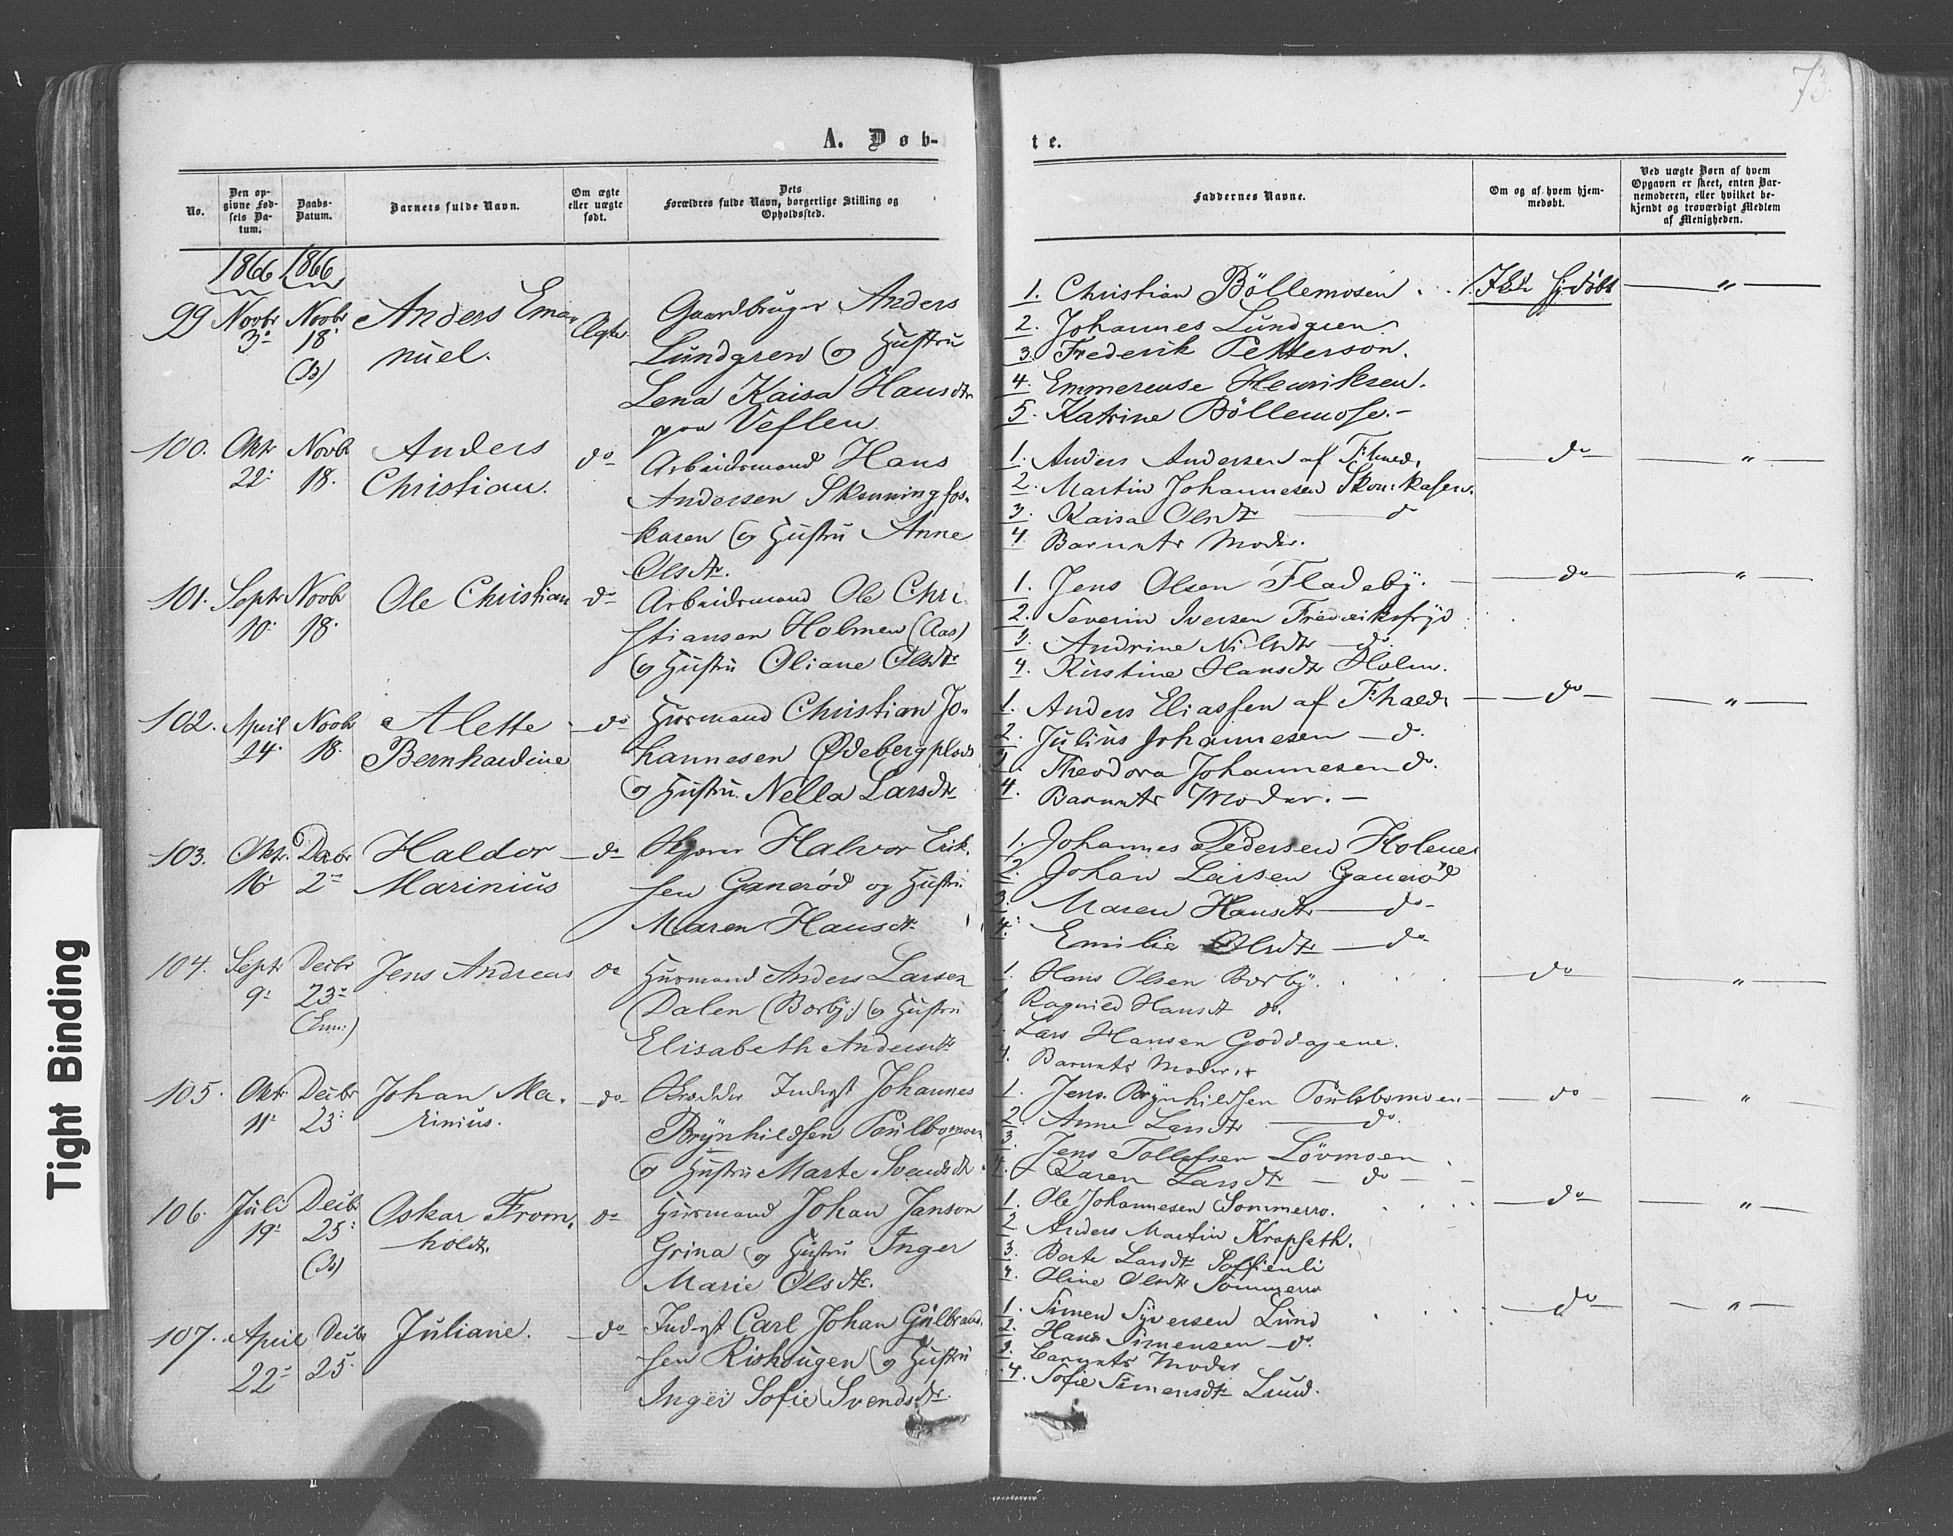 73.
A. Døb-
te.
No.
Den op-
givne Fød-
sels Da-
tum.
Daabs-
Datum.
Barnets fulde Navn.
Om ægte
eller uægte
født.
Dets
Forældres fulde Navn, borgerlige Stilling og
Opholdssted.
Faddernes Navne.
Om og af hvem hjem-
medøbt.
Ved uægte Børn af hvem
Opgaven er skeet, enten Bar-
nemoderen, eller hvilket be-
kjendt og troværdigt Medlem
af Menigheden.
1866 1866
99 Novbr 3 Novbr 18
Anders Ema-
nuel.
Ægte
Gaardbruger Anders
Lundgren og Hustru
Lena Kaisa Hansdtr
paa Veflen.
1. Christian Böllemosen
2. Johannes Lundgren
3. Frederik Petterson.
4. Emmerense Henriksen.
5. Katrine Böllemose.
100. Oktr 22 Novbr 18.
Anders
Christian.
do
Arbeidsmand Hans
Andersen
og Hustru Anne
Olsdtr.
1. Anders Andersen af
2. Martin Johannesen
3. Kaisa Olsdtr
4. Barnets Moder.
do "
101. Septr 10 Novbr 18.
Ole Christian
do
Arbeidsmand Ole Chri
stiansen Holmen (Aas)
og Hustru Oliane Olsdtr
1. Jens Olsen Fladeby.
2. Severin Iversen
3. Andrine Nilsdtr do.
4. Kirstine Hansdtr Holm.
do "
102. April 24. Novbr 18.
Alette
Bernhardine
do
Husmand Christian Jo-
hannesen Ødebergplads
og Hustru Nella Larsdtr
1. Anders Eliassen af
2. Julius Johannesen do.
3. Theodora Johannesen do.
4. Barnets Moder.
do "
103. Oktr. 16 2
Haldor
Marinius
do
Halvor Erik-
sen Ganerød og Hustru
Maren Hansdtr
1. Johannes Pedersen
2. Johan Larsen Ganerød
3. Maren Hansdtr do
4. Emilie Olsdtr do
104. Septr 9 Decbr 23
Jens Andreas
do
Husmand Anders Larsen
Dalen (Borby) og Hustru
Elisabeth Andersdtr
1. Hans Olsen Borby.
2. Ragnild Hansdt do.
3. Lars Hansen Goddagene.
4. Barnets Moder.
do "
105. Oktr 11 Decbr 23
Johan Ma-
rinius.
do
Inderst Johannes
Brynhildsen
og Hustru Marte Svendsdtr.
1. Jens Brynhildsen
2. Anne Larsdtr do.
3. Jens Tollefsen Løvmoen
4. Karen Larsdtr do
do "
106. Juli 19 Decbr 25
Oskar From-
holdt.
do
Husmand Johan Janson
Grina og Hustru Inger
Marie Olsdtr.
1. Ole Johannesen Sommerro.
2. Anders Martin Krapfeth.
3. Berte Larsdtr Soffienli
4. Oline Olsdtr Sommerro
do "
107. April 22 Decbr 25
Juliane.
do
Inderst Carl Johan Gulbrand-
sen og Hustru
Sofie Svendsdtr
1. Simen Syversen Lund
2. Hans Simensen do.
3. Barnets Moder
4. Sofie Simensdtr Lund.
do "
Tight Binding